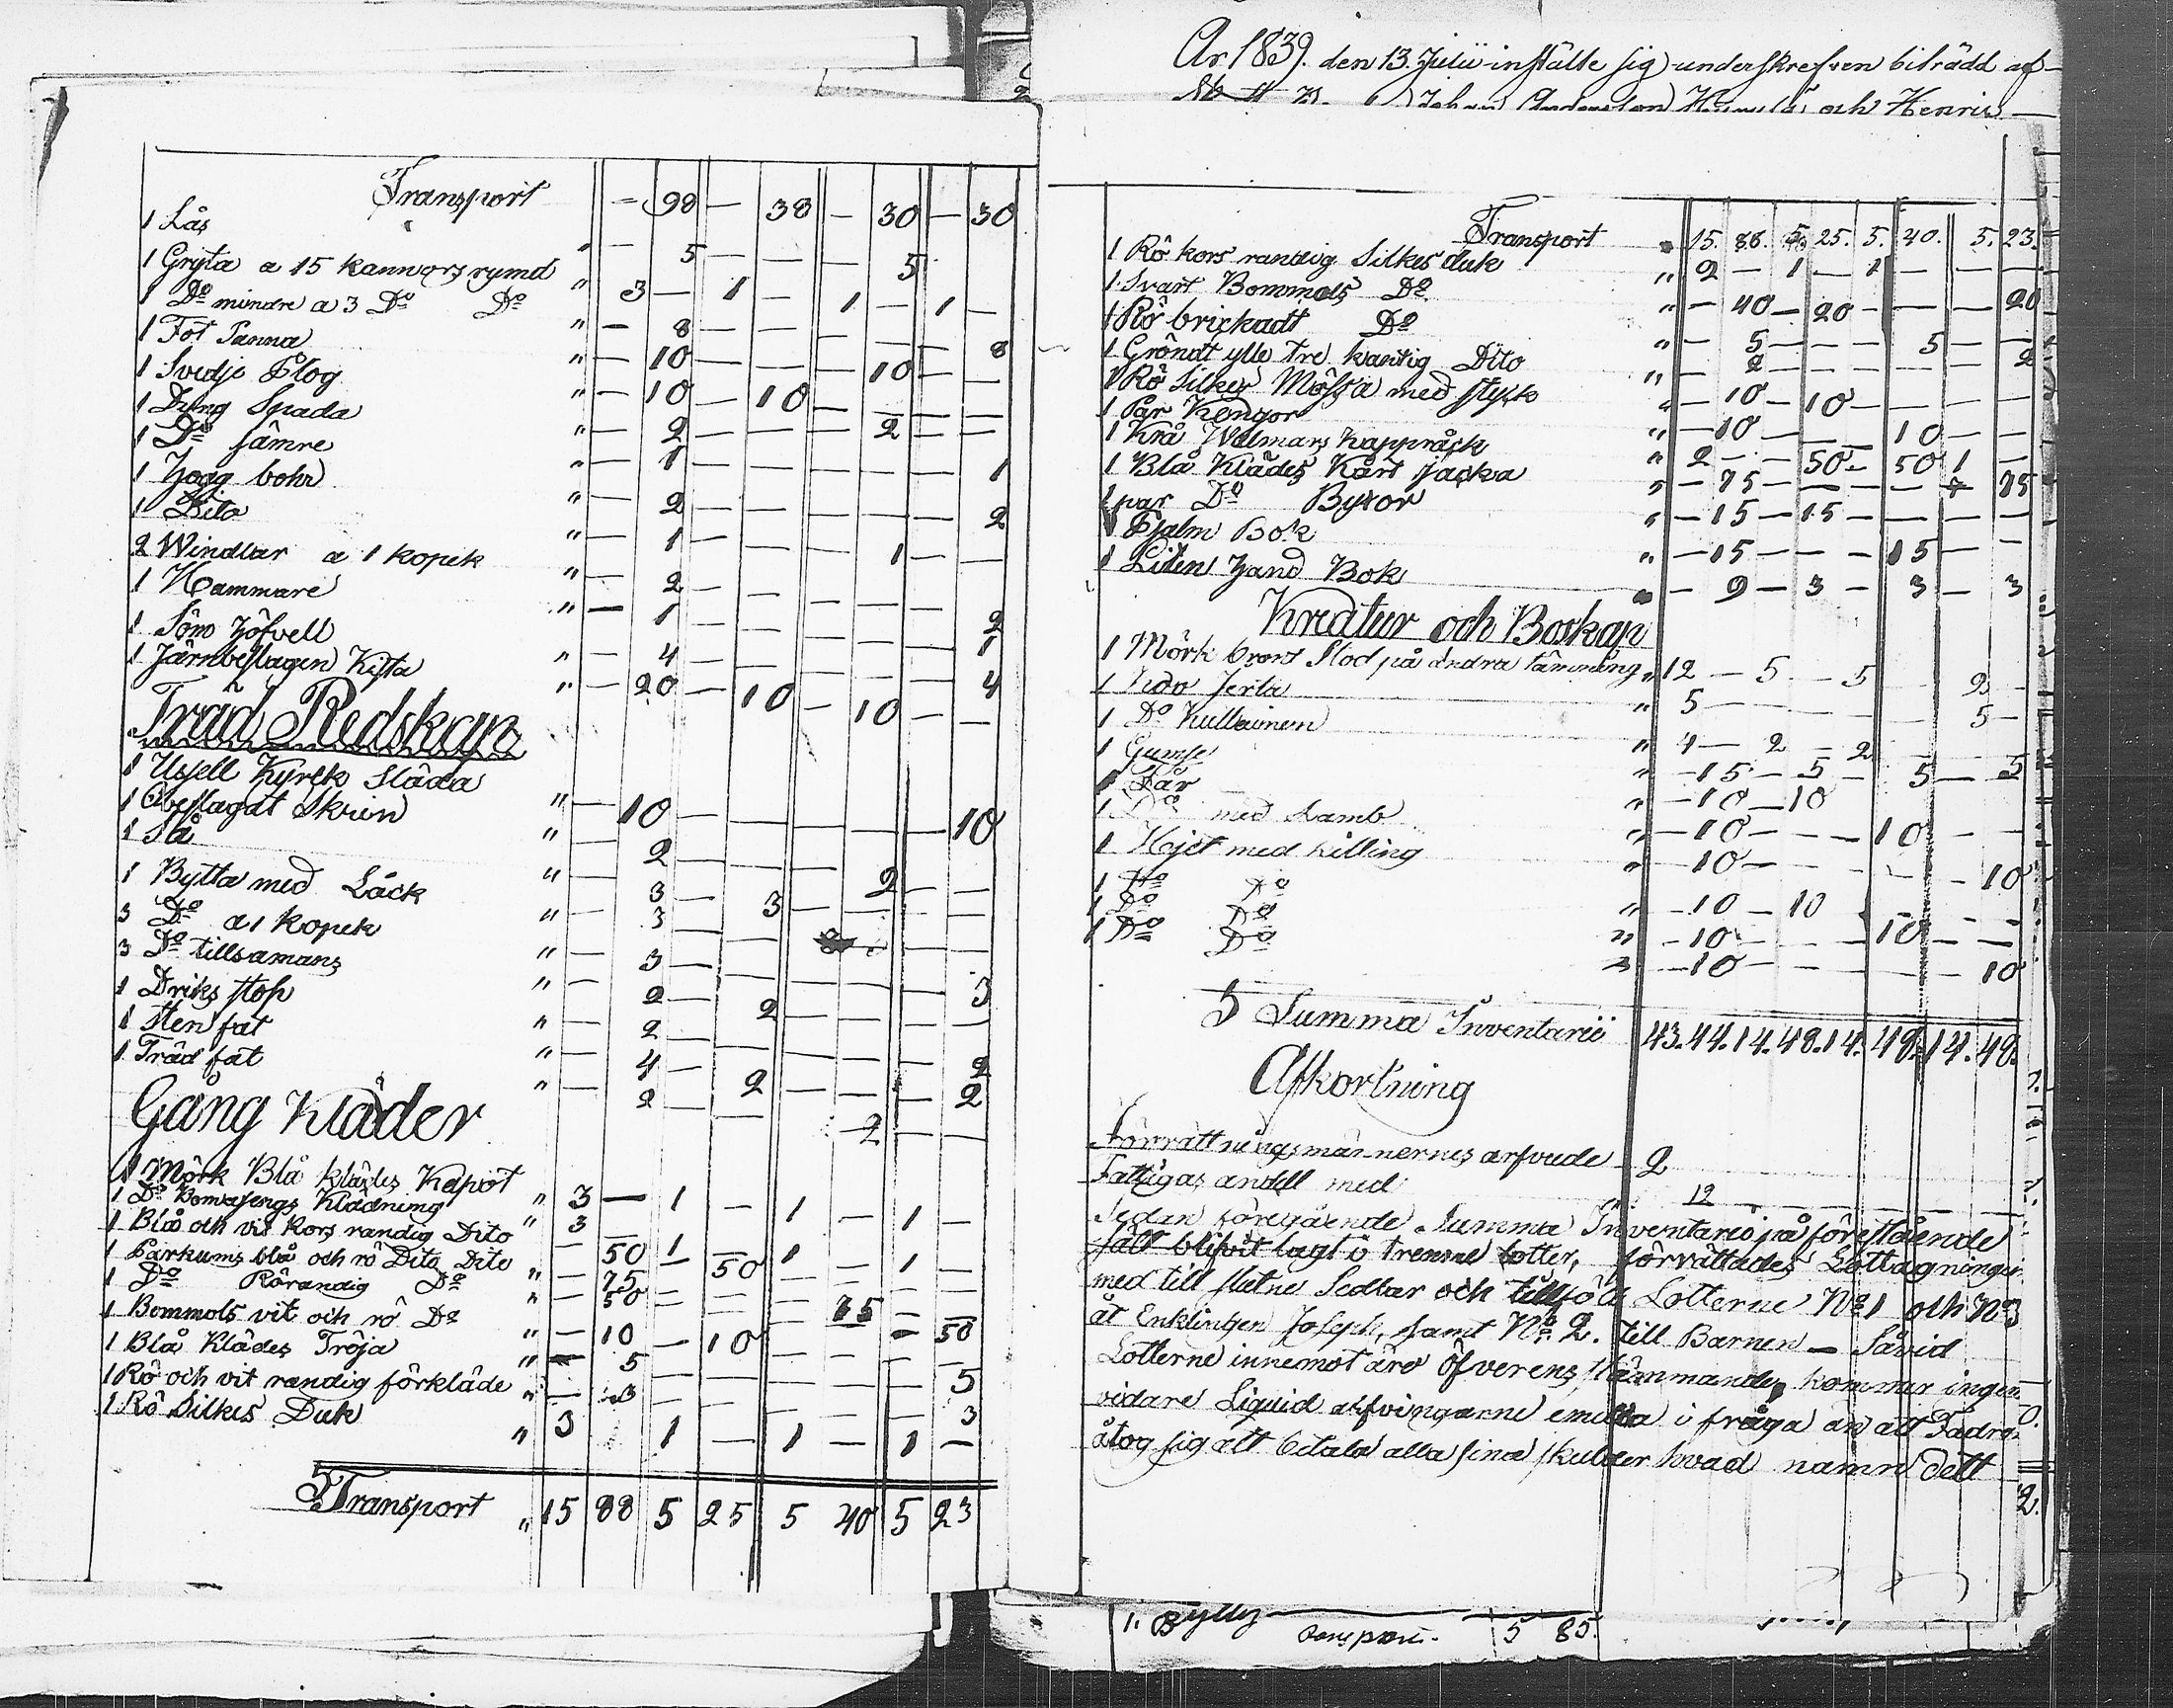 År 1839. den 13. Julii instälte sig underskrefven biträdd af
Johan Andersson och Henric
Transport — 98 — 38 — 30 — 30
1 Lås " — 5 — — — 5
1 Gryta a 15 kannors rymd " 3 — 1 — 1 — 1 —
1 Do mindre a 3 Do Do " — 8 — — — — — 8
1 Fot Panna " — 10 — — — 10 — —
1 Svedje Plog " — 10 — 10 — — — —
1 Dyng Spada " — 2 — — — 2 — —
1 Do sämre " — 1 — — — — — 1
1 Hogg bohr " — 2 — — — — — 2
1 Dito " — 1 — — — 1 — —
2 Windlar a 1 kopek " — 2 — — — — — 2
1 Hammare " — 1 — — — — — 1
1 Söm Höfvell " — 4 — — — — — 4
1 Järnbeslagen Kista " — 20 — 10 — 10 — —
Träd Redskap
1 Ussell Kyrck Släda " — 10 — — — — — 10
1 Obeslagat Skrin " — 2 — — — 2 — —
1 Så " — 3 — 3 — — — —
1 Bytta med Låck " — 3 — —
3 Do a 1 kopek " — 3 — — — — — 3
3 Do tillsamans " — 2 — 2 — — — —
1 Driks stop " — 2 — — — — — 2
1 Sten fat " — 4 — 2 — — — 2
1 Träd fat " — 2 — — — 2 — —
Gång Kläder
1 Mörk Blå klädes Kapot " 3 — 1 — 1 — 1 —
1 Do Klädning " 3 — 1 — 1 — 1 —
1 Blå och vit kors randig Dito — 50 — 50 — — — —
1 Parkums blå och rö Dito Dito " — 75 — — — 75 — —
1 Do Rörandig Do " — 50 — — — — — 50
1 Bommols vit och rö Do " — 10 — 10 — — — —
1 Blå Klädes Tröja " — 5 — — — — — 5
1 Rö och vit randig förkläde " — 3 — — — — — 3
1 Rö Silkes Duk " 3 1 — 1 — 1 —
Transport " 15 88 5 25 5 40 5 23
Transport " 15. 88. 5. 25. 5. 40. 5. 23.
1 Rö kors randig Silkes duk " 2 — 1 — 1 — — —
1 Svart Bommols Do " — 40 — 20 — — — 20
1 Rö brickadt Do " — 5 — — — 5 — —
1 Gröndt ylle tre kantig Dito " — 2 — — — — — 2
1 Rö Silkes Mössa med styck " — 10 — 10 — — — —
1 Par Kengor " — 10 — — — 10 — —
1 Krå Walmars Kappråck " 2 — — 50 — 50 1 —
1 Blå Klädes Kårt jacka " — 75 — — — — — 75
1 par Do Byxor " — 15 — 15 — — — —
1 Psalm Bok " — 15 — — — 15 — —
1 Liten Hand Bok " — 9 — 3 — 3 — 3
Kreatur och Boskap
1 Mörk brons Stod på andra tämning " 12 — 5 — 5 2 —
1 Kdo " 5 — — — — — 5 —
1 Do " 4 — 2 — 2 — — —
1 Gumse " — 15 — 5 — 5 — 5
1 Får " — 10 — 10
1 Do med Lamb " — 10 — — — 10 — —
1 Hjet med killing " — 10 — — — — — 10
1 Do Do " — 10 — 10 — — — —
1 Do Do " — 10 — — — 10 — —
1 Do Do " — 10 — — — — — 10
Summa Inventarii 43. 44. 14. 48. 14. 48. 14. 48.
Afkortning
Förrättningsmännernes arfvode 2
Fattigas andell med " 12
Sedan föregående Summa Inventarie på förestående
sätt blifvit lagt i trenne lotter, förrättades Lottagningen
med till slutne Sedlar och tillföll Lotterne No 1 och No 3
åt Enklingen Joseph, samt No 2. till Barnen — Såvid
Lotterne innemot äro öfverens stämmande, kommer ingen
vidare Liquid arfvingarne emella i fråga än att Fadren
åtog sig att betala alla sina skulder hvad namn dett
1. Bylly
Transport. 5 85.